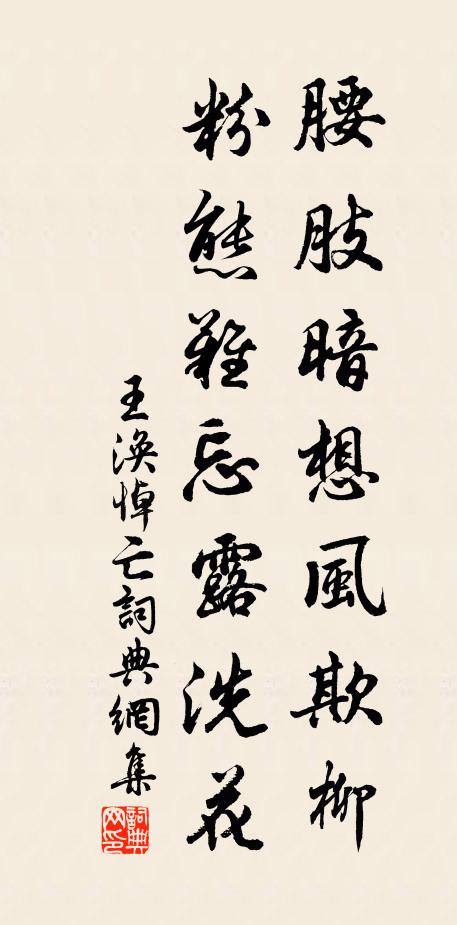 腰肢暗想風欺柳
粉態難忘露洗花
王渙悼亡詞典網集
詞典網印